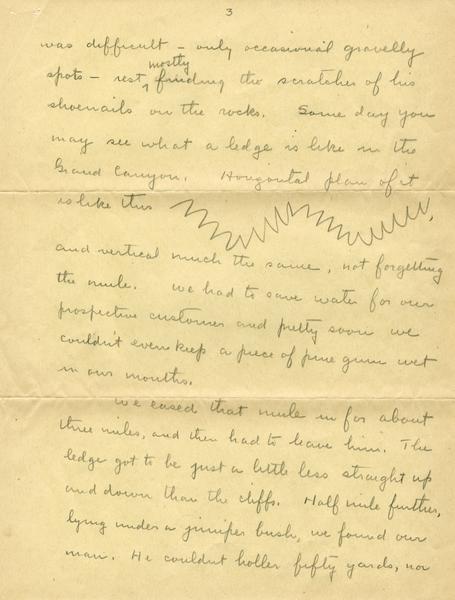 3
was difficult – only occasional gravelly
mostly
spots – rest, finding the scratches of his
shoenails on the rocks. Some day you
may see what a ledge is like in the
Grand Canyon. Horizontal plan of it
is like this
and vertical much the same, not forgetting
the mule. We had to save water for our
prospective customer and pretty soon we
couldn't even keep a piece of pine gum wet
in our mouths.
We eased that mule in for about
three miles, and then had to leave him. The
ledge got to be just a little less straight up
and down than the cliffs. Half mile further,
lying under a juniper bush, we found our
man. He couldn't holler fifty yards, nor